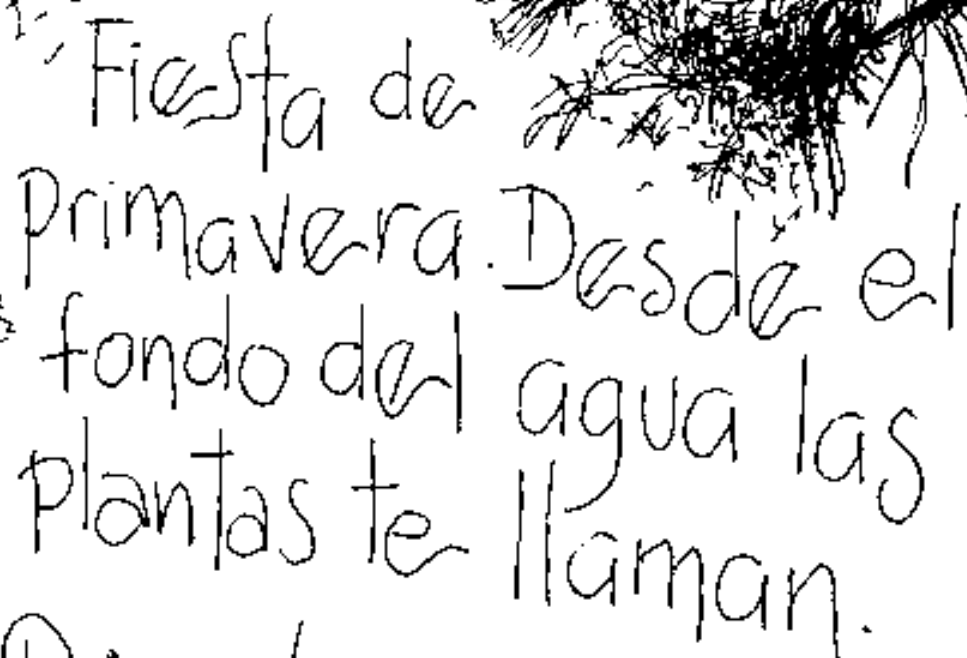 Fiesta de
Primavera. Desde el
fondo del agua las
plantas te llaman.